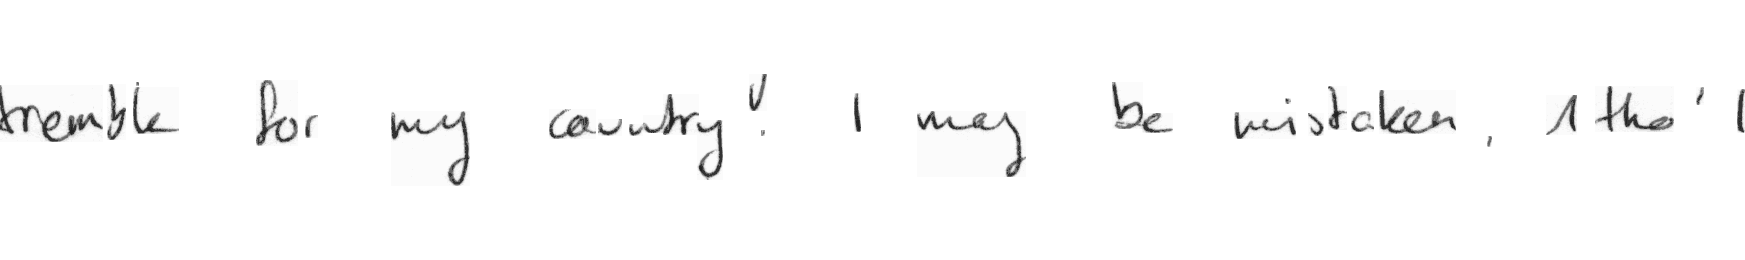 tremble for my country! I may be mistaken, 1 tho' I